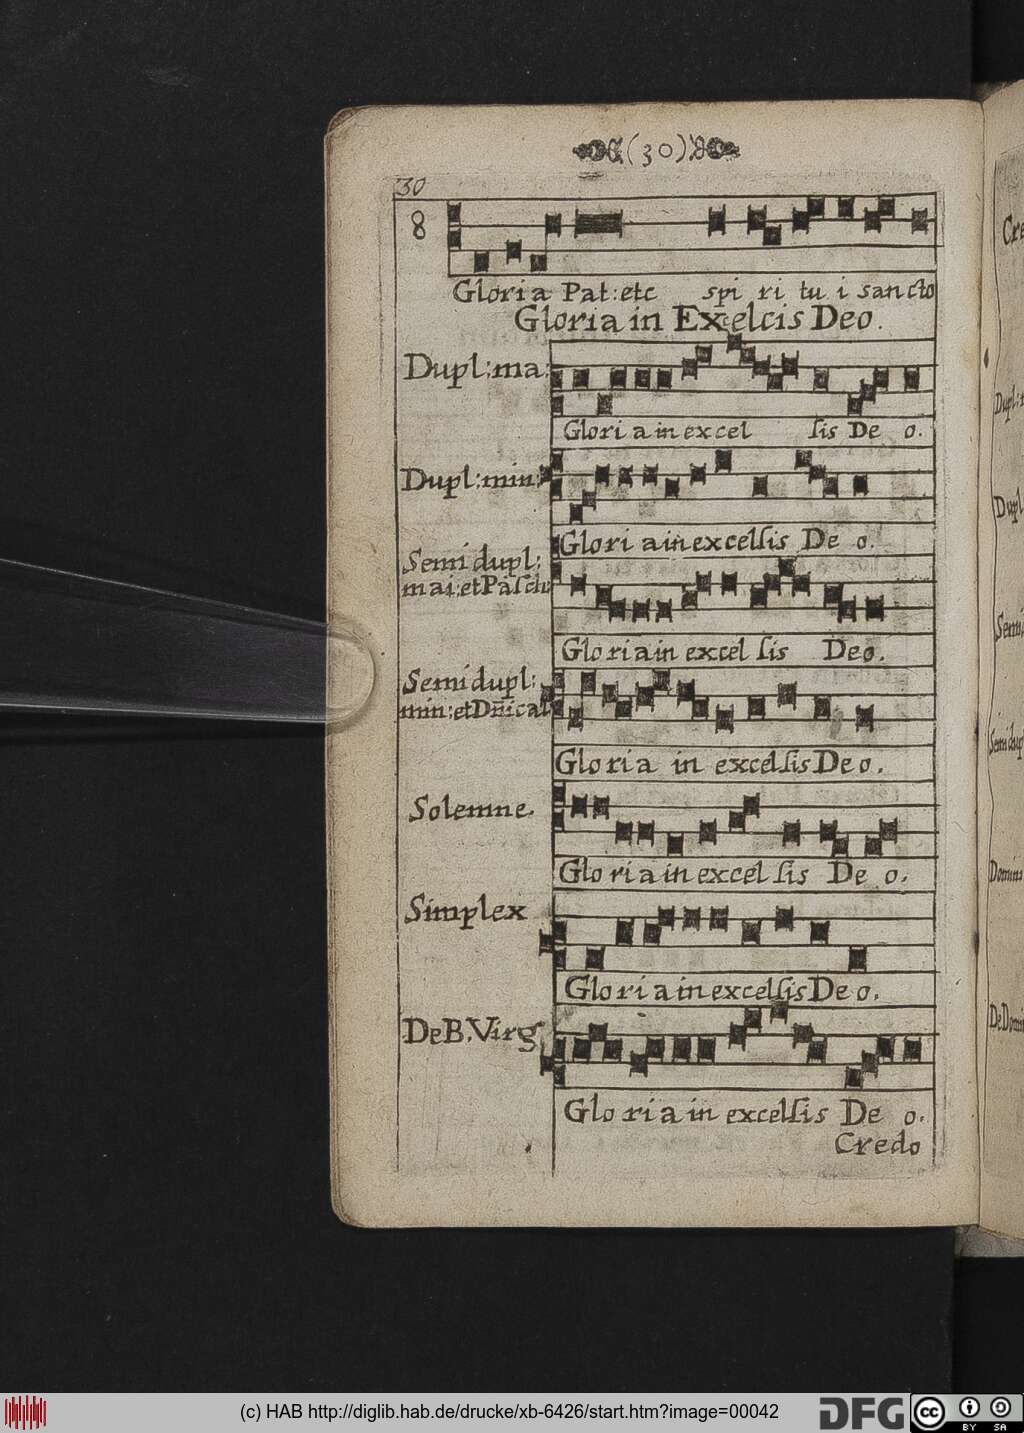 (30)
30
8
Gloria Pat:etc spi ri tu i sancto
Gloria in Excelcis Deo.
Dupl:ma:
Glori a in excel ſis De o.
Dupl:min:
Glori a in excelſis De o.
Semi dupl:
mai:et Paſch:
Gloria in excel ſis Deo.
Semidupl:
min:et Dn̄ical
Gloria in excelſis Deo.
Solemne.
Gloria in excel ſis De o.
Simplex
Gloria in excelſis Deo.
De B. Virg
Gloria in excelſis De o.
Credo
(c) HAB http://diglib.hab.de/drucke/xb-6426/start.htm?image=00042
DFG
cc
BY SA